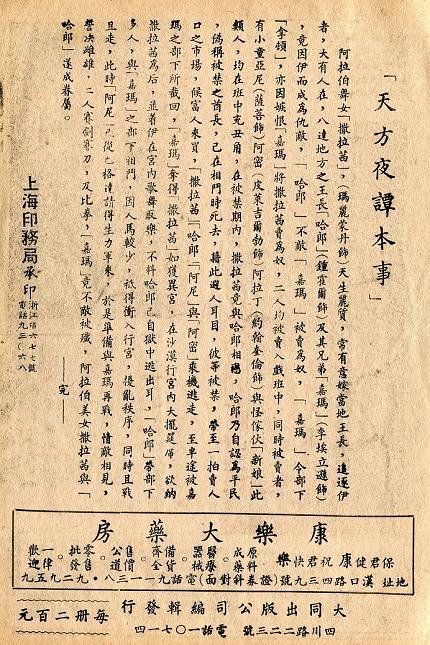 「天方夜譚本事」
阿拉伯舞女「撒拉茜」，(瑪麗蒙丹飾)天生麗質，常有意嫁當地王長，追逐伊
者，大有人在，八達地方之王長「哈郎」(鍾霍爾飾)及其兄弟「嘉瑪」(李埃立遜飾)
，竟因伊而成為仇敵，「哈郎」不敵「嘉瑪」被賣為奴，「嘉瑪」令部下
「拿頓」，亦因嫉恨「嘉瑪」將撒拉茜賣為奴，二人均被賣入戲班中，同時被賣者，
有小童亞尼(薩菩飾)阿密(皮萊吉爾勃飾)阿拉丁(約翰奎倫飾)與怪傢伙「新娘」此
類人，均在班中充丑角，在被禁期內，撒拉茜竟與哈郎相戀，哈郎乃自認為平民
，偽稱被禁之酋長，已在相鬥時死去，藉此避人耳目，彼等被禁，帶至一拍賣人
口之市場，候富人來買，「撒拉茜」「哈郎」「阿尼」與「阿密」乘機逃走，至半途被嘉
瑪之部下所截回，「嘉瑪」奪得「撒拉茜」如獲異寶，在沙漠行宮內大擺筵席，欲納
撒拉茜為后，並着伊在宮內歌舞取樂，不料哈郎已自獄中逃出耳，「哈郎」帶部下
多人，與「嘉瑪」之部下相鬥，因人馬較少，祇得衝入行宮，擾亂秩序，同時且戰
且走，此時「阿尼」已從巴格達請得生力軍來，於是準備與嘉瑪再戰，情敵相見，
誓决雌雄，二人賽劍賽刀，及比拳，「嘉瑪」竟不敵被殲，阿拉伯美女撒拉茜與「
哈郎」遂成眷屬。
——完——
上海印務局承印
浙江路六七七號
電話九三一六八
康樂大藥房
保君健康 祝君快樂
地址漢口路四九三號
原料藥科(證券對面)電話九一一三八·九二五九九
成藥
醫療器械
備貨齊全。
售價公道。
零售批發。
一律歡迎
大同出版公司編輯發行
四川路二二三號 電話一〇七一四
每册二百元